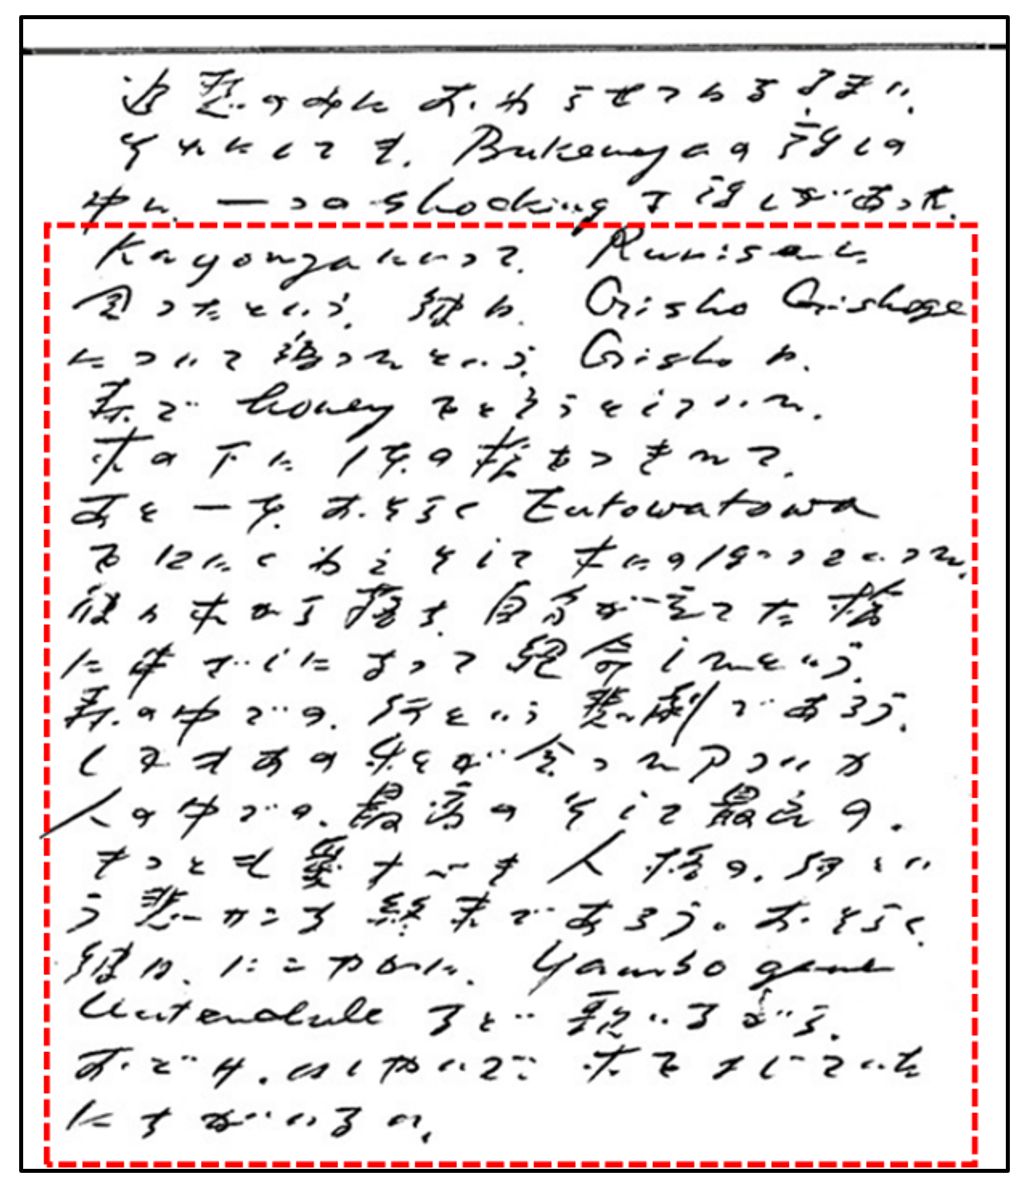 追憶のみに おわらせてはなるまい。
それにしても、Bukenyaの話しの
中に、一つのshockingな話しがあった。
Kayongaにいって、Rumisaに
会ったという。彼は、Gisho Gishoge
について語ったという。Gishoは、
森で honeyをとろうとしていた。
木の下に 1本の槍をつきたて、
あと一本、おそらく Entowatowa
を口にくわえ そして 木にのぼっていった。
彼は木から落ち、自分が立てた槍
に串ざしによって絶命したという。
森の中での、何という悲劇であろう。
しかもあの 私が会ったアフリカ
人の中での、最高の そして最高の、
もっとも愛すべき人格の、何とい
う悲しかなる終末であろう。おそらく
彼は、にこやかに、Yambo gene
Untendule などと歌いながら、
おどけ、はしゃいで 木を
にちがいない。